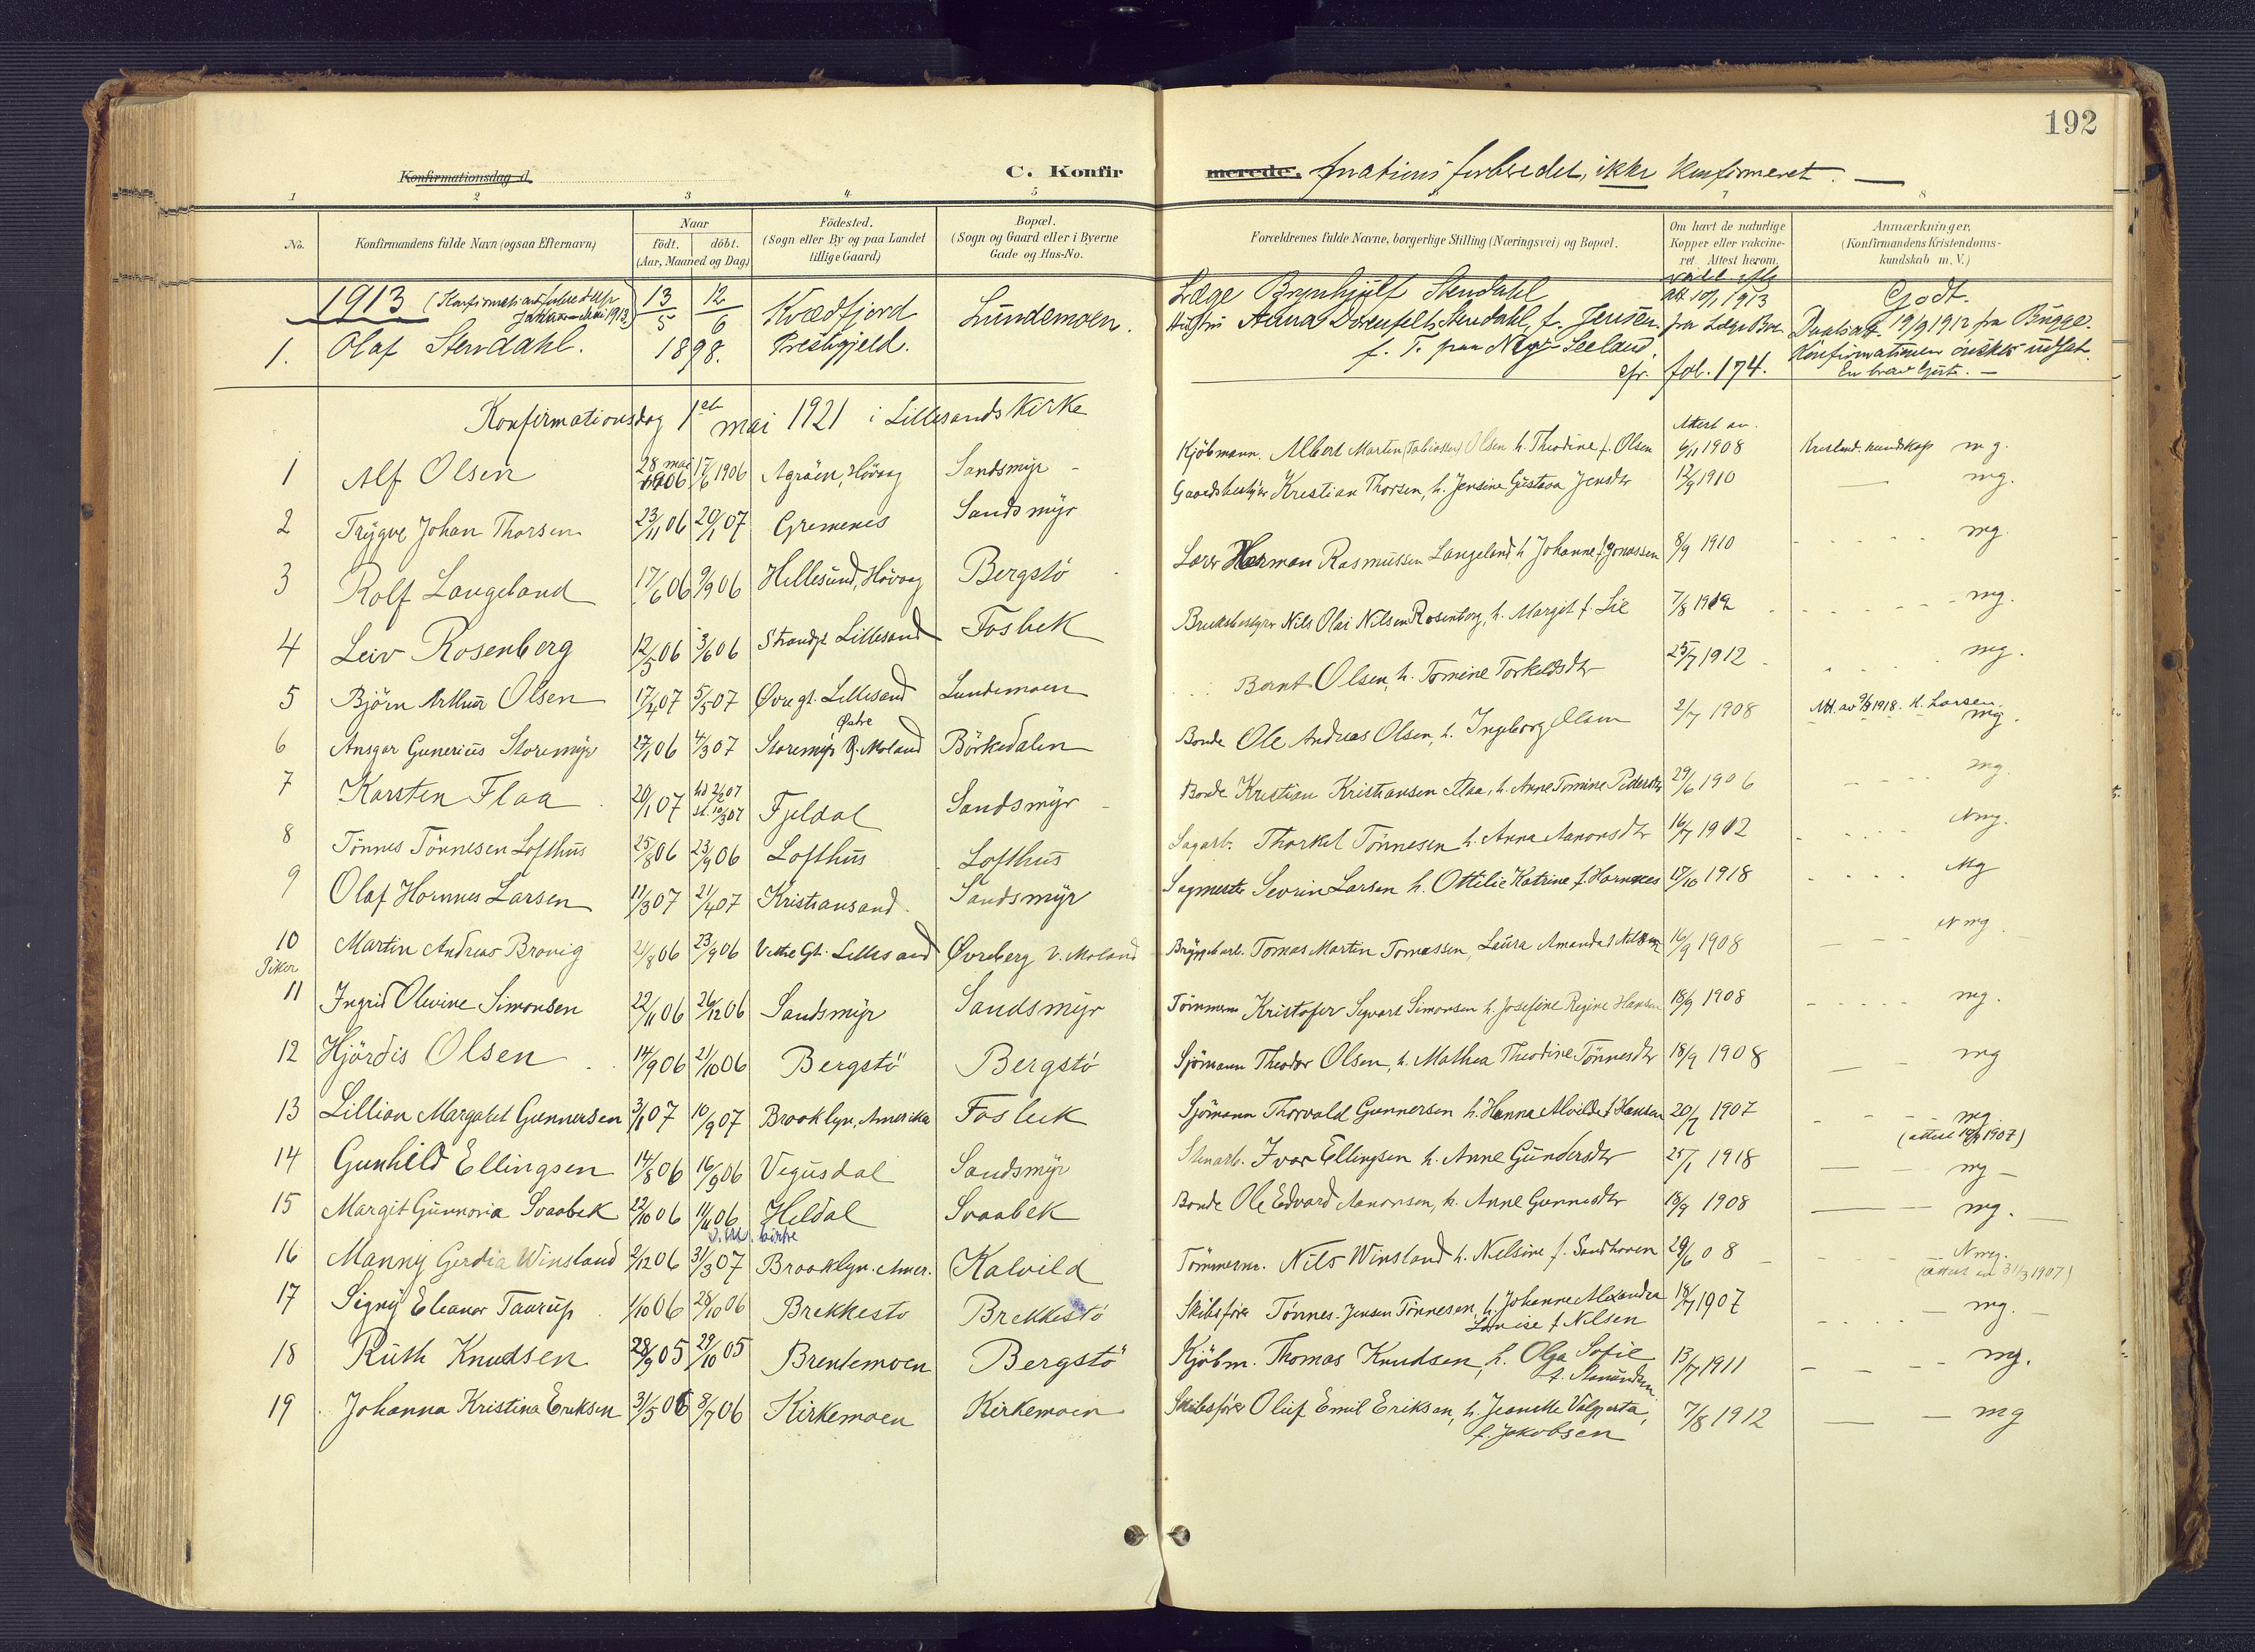 192
Konfirmationsdag d.
C. Konfirmerede. mations forberedet, ikke Konfirmeret. —
1 2 3 4 5 6 7 8
No. Konfirmandens fulde Navn (ogsaa Efternavn) Naar födt. döbt. (Aar, Maaned og Dag) Födested. (Sogn eller By og paa Landet tillige Gaard) Bopæl. (Sogn og Gaard eller i Byerne Gade og Hus-No. Forældrenes fulde Navne, borgerlige Stilling (Næringsvei) og Bopæl. Om havt de naturlige Kopper eller vakcineret. Attest herom. Anmærkninger, (Konfirmandens Kristendomskundskab m. V.)
1913 (Konfirmationsforberedelse Januar–Mai 1913.)
1. Olaf Stendahl. 13/5 1898. 12/6 Kvædfjord Prestegjeld. Lundemoen. Læge Brynhjulf Stendahl Hustru Anna Dorenfelt Stendahl, f. Jensen. f. T. paa Ny Seeland. att 10/1 1913 fra Læge Boe. cfr. fol. 174. Godt. Daabsatt. 19/9 1912 fra Bugge. Konfirmationen önskes udsat. En brav Gut. —
Konfirmationsdag 1ste mai 1921 i Lillesands Kirke
Attest av.
1 Alf Olsen 28 mai 1906 17/6 1906 Agröen, Hövaag Sandsmyr Kjöbmann. Albert Martin (Tobiassen) Olsen h. Theodine f. Olsen 6/11 1908 Kristend. kundskap mg.
2 Trygve Johan Thorsen 23/11 06 20/1 07 Gremenes Sandsmyr Gaardsbestyrer Kristian Thorsen, h. Jensine Gustava Jensdtr 12/9 1910 mg.
3 Rolf Langeland 17/6 06 9/9 06 Hellesund, Hövaag Bergstö Lærer Herman Rasmussen Langeland, h Johanne f Jonassen 8/9 1910 mg.
4 Leiv Rosenberg 12/5 06 3/6 06 Strandgt. Lillesand Fosbek Bruksbestyrer Nils Olai Nilsen Rosenborg, h. Margit f. Lie 7/8 1912 mg.
5 Björn Arthur Olsen 17/4 07 5/5 07 Øvregt. Lillesand Lundemoen Bernt Olsen, h. Tomine Torkeldsdtr 25/7 1912 mg.
6 Ansgar Gunerius Storemyr 27/1 06 4/3 07 Storemyr Østre Moland Börkedalen Bonde Ole Andreas Olsen, h. Ingeborg Olsen 2/7 1908 Att. av 9/3 1918. K. Larsen. mg.
7 Karsten Flaa 20/1 07 hd 2/2 07 st. 10/3 07 Fjeldal Sandsmyr Bonde Kristian Kristiansen Flaa, h. Anne Tomine Pedersdtr 29/6 1906 mg.
8 Tönnes Tönnesen Lofthus 25/8 06 23/9 06 Lofthus Lofthus Sagarb. Thorkel Tönnesen h. Anna Aanonsdtr 16/7 1912 Nmg.
9 Olaf Hornnes Larsen 11/3 07 21/4 07 Kristiansand Sandsmyr Sagmester Sevrin Larsen h. Ottilie Katrine f. Hornnes 17/10 1918 Mg
10 Martin Andreas Brovig 21/8 06 23/9 06 Vestre Gt. Lillesand Øvreberg V. Moland Bryggearb. Tomas Martin Tomassen, Laura Amanda f Nilsen 16/9 1908 Nmg.
Piker
11 Ingrid Olivine Simonsen 22/11 06 26/12 06 Sandsmyr Sandsmyr Tömmerm Kristofer Sigvart Simonsen h. Josefine Regine Hansen 18/9 1908 mg.
12 Hjördis Olsen 14/9 06 21/10 06 Bergstö Bergstö Sjömann Theodor Olsen, h. Mathea Theodine Tönnesdtr 18/9 1908 mg
13 Lillian Margaret Gunnersen 3/8 07 10/9 07 Brooklyn, Amerika Fosbek Sjömann Thorvald Gunnersen h. Hanna Alvilde f Hansen 20/7 1907 mg (attest 1907)
14 Gunhild Ellingsen 14/8 06 16/9 06 Vegusdal Sandsmyr Stenarb. Ivar Ellingsen h. Anne Gundersdtr 25/1 1918 mg
15 Margit Gunnoria Svaabek 22/10 06 11/11 06 V. M. kirke Heldal Svaabek Bonde Ole Edvard Aanonsen, h. Anne Gunnesdtr 18/9 1908 mg.
16 Manny Gerdia Winsland 2/12 06 31/3 07 Brooklyn. Amer. Kalvild Tömmerm. Nils Winsland h. Nielsine f. Sandhaven 29/6 08 Nmg. (attest av 31/3 1907)
17 Signy Eleanor Taarup 1/10 06 28/10 06 Brekkestö Brekkestö Skibsförer Tönnes Jensen Tönnesen, h. Johanne Alexandra Louise f Nilsen 18/7 1907 mg.
18 Ruth Knudsen 28/9 05 29/10 05 Brentemoen Bergstö Kjöbm. Thomas Knudsen, h. Olga Sofie f. Amundsen 13/7 1911 mg.
19 Johanna Kristina Eriksen 31/5 06 8/7 06 Kirkemoen Kirkemoen Skibsförer Oluf Emil Eriksen, h. Jeanette Valgerta, f. Jakobsen 7/8 1912 mg